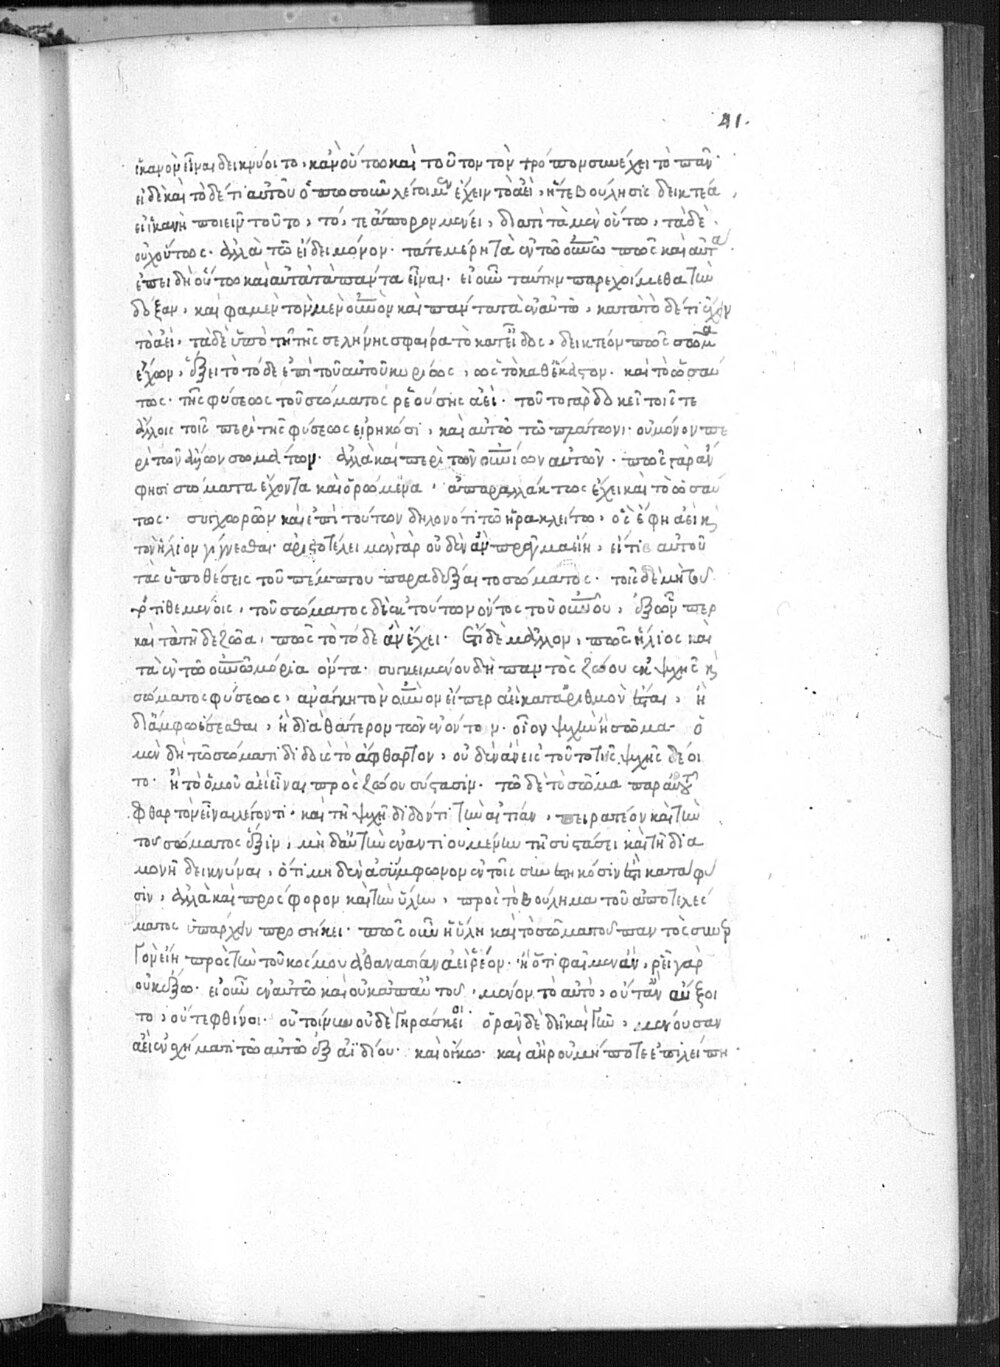 41.
ἱκανὸν εἶναι δεικνύοιτο, κἂν οὕτω καὶ τοῦτον τὸν τρόπον συνέχει τὸ πᾶν·
εἰ δὲ καὶ τὸ δέ τι αὐτοῦ ὁποσοῦν λέγοιμεν ἔχειν τὸ ἀεί, ἥ τε βούλησις δεικτέα,
εἰ ἱκανὴ ποιεῖν τοῦτο, τό, τε ἄπορον μένει, διατί τὰ μὲν οὕτω, τὰ δὲ
οὐχ οὕτως· ἀλλὰ τῶ εἴδει μόνον· τά τε μέρη τὰ ἐν τῶ οὐνῶ πῶς καὶ αὐτά·
ἐπειδὴ οὕτω καὶ αὐτὰ τὰ πάντα εἶναι· εἰ οὖν ταύτην παρεχοίμεθα τὴν
δόξαν, καὶ φαμὲν τὸν μὲν οὐνὸν καὶ πάντα τὰ ἐν αὐτῶ, κατὰ τὸ δέ τι ἔχειν
τὸ ἀεί, τὰ δὲ ὑπὸ τῆ τῆς σελήνης σφαίρα τὸ κατ' εἶδος, δεικτέον πῶς σῶμα
ἔχων, ἕξει τὸ τόδε ἐπὶ τοῦ αὐτοῦ κυρίως, ὡς τὸ καθέκαστον· καὶ τὸ ὡσαύ
τως· τῆς φύσεως τοῦ σώματος ῥεούσης ἀεί· τοῦτο γὰρ δοκεῖ τοῖς τε
ἄλλοις τοῖς περὶ τῆς φύσεως εἰρηκόσι, καὶ αὐτῶ τῶ πλάτωνι· οὐ μόνον πε
ρὶ τῶν ἄλλων σωμάτων· ἀλλὰ καὶ περὶ τῶν οὐνίων αὐτῶν· πῶς γὰρ ἄν
φησι σώματα ἔχοντα καὶ ὁρώμενα, ἀπαραλλάκτως ἔχει καὶ τὸ ὡσαύ
τως· συγχωρῶν καὶ ἐπὶ τούτων δηλονότι τῶ ἡρακλείτω, ὃς ἔφη ἀεὶ κὶ
τὸν ἥλιον γίνεσθαι· ἀριστοτέλει μὲν γὰρ οὐδὲν ἂν πρᾶγμα εἴη, εἴ τις αὐτοῦ
τὰς ὑποθέσεις τοῦ πέμπτου παραδέξαιτο σώματος· τοῖς δὲ μὴ τοῦ
τιθεμένοις, τοῦ σώματος δὲ ἐκ τούτων ὄντος τοῦ οὐνοῦ, ἐξ ὧν περ
καὶ τὰ τῆδε ζῶα, πῶς τὸ τόδε ἂν ἔχει· ἔτι δὲ μᾶλλον, πῶς ἥλιος καὶ
τὰ ἐν τῶ οὐνῶ μόρια ὄντα· συγκειμένου δὴ παντὸς ζώου ἐκ ψυχῆς κὶ
σώματος φύσεως, ἀνάγκη τὸν οὐνὸν εἴπερ ἀεὶ κατ' ἀριθμὸν ἔσται, ἢ
δι' ἄμφω ἔσεσθαι, ἢ διὰ θάτερον τῶν ἐνόντων· οἷον ψυχὴν ἢ σῶμα· ὁ
μὲν δὴ τῶ σώματι διδοὺς τὸ ἄφθαρτον, οὐδὲν ἂν εἰς τοῦτο τῆς ψυχῆς δέοι
το· ἢ τὸ ὁμοῦ ἀεὶ εἶναι πρὸς ζώου σύστασιν· τῶ δὲ τὸ σῶμα παρ' αὑτοῦ
φθαρτὸν εἶναι λέγοντι· καὶ τῆ ψυχῆ διδόντι τὴν αἰτίαν, πειρατέον καὶ τὴν
τοῦ σώματος ἕξιν, μηδ' αὐτὴν ἐναντιουμένην τῆ συστάσει καὶ τῆ δια
μονῆ δεικνύναι, ὅτι μηδὲν ἀσύμφωνον ἐν τοῖς συνεστηκόσιν ἐστὶ κατὰ φύ
σιν, ἀλλὰ καὶ πρόσφορον καὶ τὴν ὕλην, πρὸς τὸ βούλημα τοῦ ἀποτελές
ματος ὑπάρχειν προσήκει· πῶς οὖν ἡ ὕλη καὶ τὸ σῶμα τοῦ παντὸς συνερ
γὸν εἴη πρὸς τὴν τοῦ κόσμου ἀθανασίαν ἀεὶ ῥέον· ἢ ὅτι φαῖμεν ἄν, ῥεῖ γὰρ
οὐκ ἔξω· εἰ οὖν ἐν αὐτῶ καὶ οὐκ ἀπ' αὐτοῦ, μένον τὸ αὐτό, οὔτ' ἂν αὔξοι
το, οὔτε φθίνοι· οὐ τοίνυν οὐδὲ γηράσκει· ὁρᾶν δὲ δεῖ καὶ γῆν, μένουσαν
ἀεὶ ἐν σχήματι τῶ αὐτῶ ἐξ ἀϊδίου· καὶ ὄγκω· καὶ ἀὴρ οὐ μήποτε ἐπιλείπη·